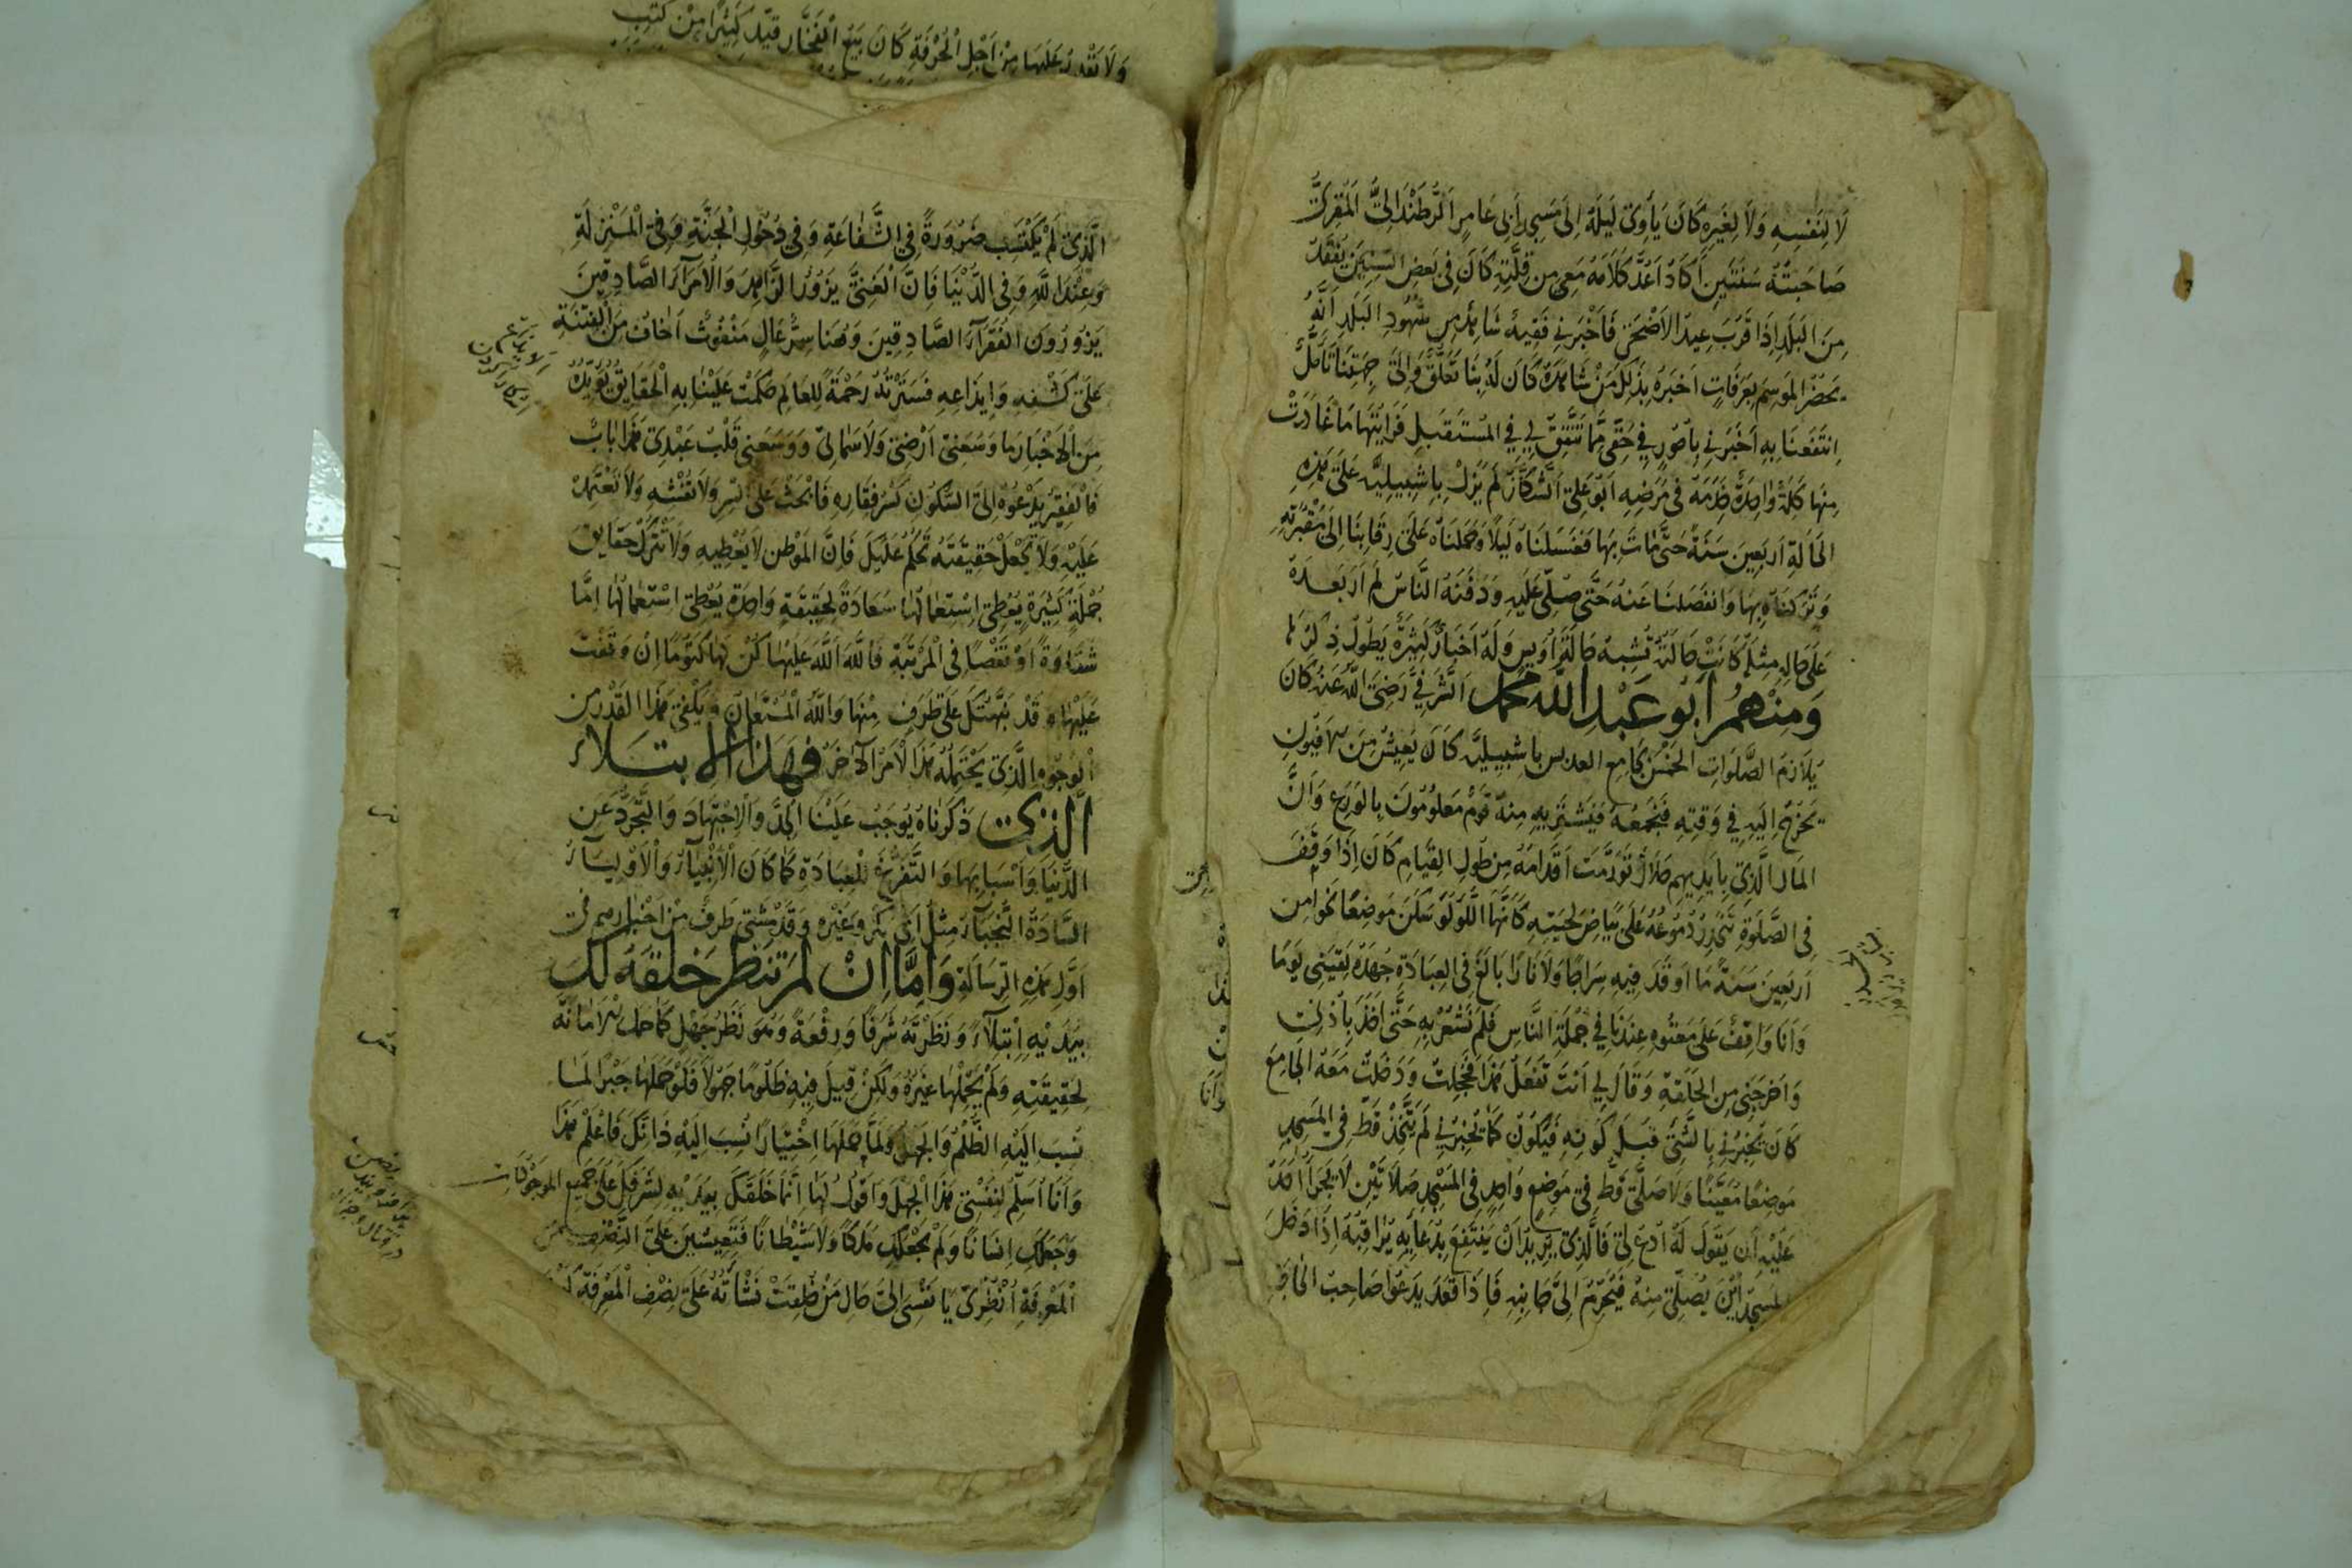 لَا لِنَفْسِهِ وَلَا لِغَيْرِهِ كَانَ يَأْوِى لَيْلَةً اِلَى مَسْجِدِ أَبِى عَامِرِ الرُّطَنْدَالِىِّ الْمُقْرِئِ
صَاحَبْتُهُ سَنَتَيْنِ اَكَادُ اَعُدُّ كَلَامَهُ مَعِى مِن قِلَّتِهِ كَانَ فِى بَعْضِ السِّنِينَ يُفْقَدُ
مِنَ الْبَلَدِ اِذَا قَرُبَ عِيدُ الْاَضْحَى فَاَخْبَرَنِى فَقِيهٌ شَاهِدٌ مِن شُهُودِ الْبَلَدِ اَنَّهُ
يَحْضُرُ الْمَوْسِمَ بِعَرَفَاتٍ اَخْبَرَهُ بِذَلِكَ مَنْ شَاهَدَهُ كَانَ لَهُ بِنَا تَعَلُّقٌ وَاِلَى جِهَتِنَا تَأَمُّلٌ
اِنْتَفَعْنَا بِهِ اَخْبَرَنِى بِاُمُورٍ فِى حَقِّى مِمَّا تَتَّفِقُ لِى فِى الْمُسْتَقْبَلِ فَرَاَيْتُهَا مَا غَادَرَتْ
مِنْهَا كَلِمَةً وَاحِدَةً خَدَمَهُ فِى مَرَضِهِ اَبُو عَلِى الشَّكَّازُ لَمْ يَزَلْ بِاِشْبِيلِيَّةَ عَلَى هَذِهِ
الْحَالَةِ اَرْبَعِينَ سَنَةً حَتَّى مَاتَ بِهَا فَغَسَلْنَاهُ لَيْلًا وَحَمَلْنَاهُ عَلَى رِقَابِنَا اِلَى مَقْبُرَتِهِ
وَتَرَكْنَاهُ بِهَا وَانْفَصَلْنَا عَنْهُ حَتَّى صُلِّىَ عَلَيْهِ وَدَفَنَهُ النَّاسُ لَمْ اَرَ بَعْدَهُ
عَلَى حَالِهِ مِثْلَهُ كَانَتْ حَالَتُهُ تُشْبِهُ حَالَةَ اُوَيْسٍ وَلَهُ اَخْبَارٌ كَثِيرَةٌ يَطُولُ ذِكْرُهَا
وَمِنْهُمْ اَبُو عَبْدِ اللّٰهِ مُحَمَّد الشَّرَفِىُّ رَضِىَ اللّٰهُ عَنْهُ كَانَ
يُلَازِمُ الصَّلَوَاتِ الْخَمْسَ بِجَامِعِ العدس بِاشْبِيلِيَّةَ كَانَ يَعِيشُ مِنَ الْاَفْيُونِ
يَخْرُجُ اِلَيْهِ فِى وَقْتِهِ فَيَجْمَعُهُ فَيَشْتَرِيهِ مِنْهُ قَوْمٌ مَعْلُومُونَ بِالْوَرَعِ وَاَنَّ
الْمَالَ الَّذِى بِاَيْدِيهِمْ حَلَالٌ تَوَرَّمَتْ اَقْدَامُهُ مِنْ طُولِ الْقِيَامِ كَانَ اِذَا وَقَفَ
فِى الصَّلَوةِ تَنْحَدِرُ دُمُوعُهُ عَلَى بَيَاضِ لِحْيَتِهِ كَاَنَّهَا اللُّؤْلُؤُ سَكَنَ مَوْضِعًا نَحْوًا مِن
اَرْبَعِينَ سَنَةً مَا اَوْقَدَ فِيهِ سِرَاجًا وَلَا نَارًا بَالَغَ فِى الْعِبَادَةِ جُهْدَهُ لَقِيَنِى يَوْمًا
وَاَنَا وَاقِفٌ عَلَى مَعْتُوهٍ عِنْدَنَا فِى جُمْلَةِ النَّاسِ فَلَمْ نَشْعُرْ بِهِ حَتَّى اَخَذَ بِاُذُنِى
وَاَخْرَجَنِى مِنَ الْحَلْقَةِ وَقَالَ لِى اَنْتَ تَفْعَلُ هَذَا فَخَجِلْتُ وَدَخَلْتُ مَعَهُ الْجَامِعَ
كَانَ يُخْبِرُنِى بِالشَّىْءِ قَبْلَ كَوْنِهِ فَيَكُونُ كَمَا يُخْبِرُنِى لَمْ يَتَّخِذْ قَطُّ فِى الْمَسْجِدِ
مَوْضِعًا مُعَيَّنًا وَلَا صَلَّى قَطُّ فِى مَوْضِعٍ وَاحِدٍ فِى الْمَسْجِدِ صَلَاتَيْنِ لَا يَجْرَأُ اَحَدٌ
عَلَيْهِ اَن يَقُولَ لَهُ اُدْعُ لِى فَالَّذِى يُرِيدُ اَنْ يَنْتَفِعَ بِدُعَائِهِ يُرَاقِبُهُ اِذَا دَخَلَ
الْمَسْجِدَ اَيْنَ يُصَلِّى مِنْهُ فَيُحْرِمُ اِلَى جَانِبِهِ فَاِذَا قَعَدَ يَدْعُوا صَاحِبُ الْحَاجَةِ
وَلَا تَقْدِرُ عَلَيْهَا مِنْ اَجْلِ الْحُرْفَةِ كَانَ يَبِيعُ الْفَخَّارَ قَيَّدَ كَثِيرًا مِنْ كُتُبِ
الَّذِى لَمْ يَكْتَسِبْ ضَرُورَةً فِى الشَّفَاعَةِ وَفِى دُخُولِ الْجَنَّةِ وَفِى الْمَنْزِلَةِ
وَعِنْدَ اللّٰهِ وَفِى الدُّنْيَا فَاِنَّ الْغَنِىَّ يَزُورُ الزَّاهِدَ وَالْاُمَرَآءَ الصَّادِقِينَ
يَزُورُونَ الْفُقَرَآءَ الصَّادِقِينَ وَهُنَا سِرٌّ عَالٍ مَنْفُوثٌ اَخَافُ مِنَ الْفِتْنَةِ
عَلَى كَشْفِهِ وَاِيدَاعِهِ فَسَتَرْتُهُ رَحْمَةً لِلْعَالَمِ حَكَمَتْ عَلَيْنَا بِهِ الْحَقَايِقُ يُؤَيِّدُهُ
مِنَ الْاَخْبَارِ مَا وَسِعَنِى اَرْضِى وَلَا سَمَائِى وَوَسِعَنِى قَلْبُ عَبْدِى فَهَذَا بَابٌ
فَالْفَقِيرُ يَدْعُوهُ اِلَى السُّكُونِ كَسْرُ فَقَارِهِ فَابْحَثْ عَلَى السِّرِّ وَلَا تُفْشِهِ وَلَا تَعْتَمِدْ
عَلَيْهِ وَلَا تَجْعَلْ حَقِيقَتَهُ تَحْكُمُ عَلَيْكَ فَاِنَّ الْمَوْطِنَ لَا يُعْطِيهِ وَلَا تَتْرُكْ حَقَايِقَ
جُمْلَةٍ كَثِيرَةٍ يُعْطِى اِسْتِعْمَالُهَا سَعَادَةً لِحَقِيقَةٍ وَاحِدَةٍ يُعْطِى اسْتِعْمَالُهَا اِمَّا
شَقَاوَةً اَوْ نَقْصًا فِى الْمَرْتَبَةِ فَاللّٰهَ اللّٰهَ عَلَيْهَا كُنْ لَهَا كَتُومًا اِنْ وَقَفْتَ
عَلَيْهَا وَقَدْ نَبَّهْتُكَ عَلَى طَرَفٍ مِنْهَا وَاللّٰهُ الْمُسْتَعَانُ وَيَكْفِى هَذَا الْقَدْرُ مِنَ
الْوُجُوهِ الَّذِى يَحْتَمِلُهُ هَذَا الْاَمْرُ الْآخَرُ فَهَذَا الْاِبْتِلَاءُ
الَّذِى ذَكَرْنَاهُ يُوجِبُ عَلَيْنَا الْجِدَّ وَالْاِجْتِهَادَ وَالتَّجَرُّدَ عَنِ
الدُّنْيَا وَاَسْبَابِهَا وَالتَّفَرُّغَ لِلْعِبَادَةِ كَمَا كَانَ الْاَنْبِيَآءُ وَالْاَوْلِيَآءُ
السَّادَةُ النُّجَبَآءُ مِثْلُ اَبِى بَكْرٍ وَغَيْرِهِ وَقَدْ مَشَى طَرَفٌ مِنْ اَخْبَارِهِمْ فِى
اَوَّلِ هَذِهِ الرِّسَالَةِ وَاَمَّا اِنْ لَمْ تَنْظُرْ خَلْقَهُ لَكَ
بِيَدَيْهِ اِبْتِلَآءً وَنَظَرْتَهُ شَرَفًا وَرِفْعَةً وَهُوَ نَظَرُ جَهْلٍ كَمَا حَمَلَ الْاَمَانَةَ
لِحَقِيقَتِهِ وَلَمْ يَحْمِلْهَا غَيْرُهُ وَلَكِنْ قِيلَ فِيهِ ظَلُومًا جَهُولًا فَلَوْ حَمَلَهَا جَبْرًا لَمَا
نُسِبَ اِلَيْهِ الظُّلْمُ وَالْجَهْلُ وَلَمَّا حَمَلَهَا اِخْتِيَارًا نُسِبَ اِلَيْهِ ذَالِكَ فَاعْلَمْ هَذَا
وَاَنَا اُسَلِّمُ لِنَفْسِى هَذَا الْجَهْلَ وَاَقُولُ لَهَا اِنَّمَا خَلَقَكِ بِيَدَيْهِ لِشَرَفِكِ عَلَى جَمِيعِ الْمَوْجُودَاتِ
وَجَعَلَكِ اِنْسَانًا وَلَمْ يَجْعَلْكِ مَلَكًا وَلَا شَيْطَانًا فَتَعِيشِينَ عَلَى النِّصْفِ مِنَ
الْمَعْرِفَةِ اُنْظُرِى يَا نَفْسِى اِلَى حَالِ مَنْ خُلِقَتْ نَشْأَتُهُ عَلَى نِصْفِ الْمَعْرِفَةِ